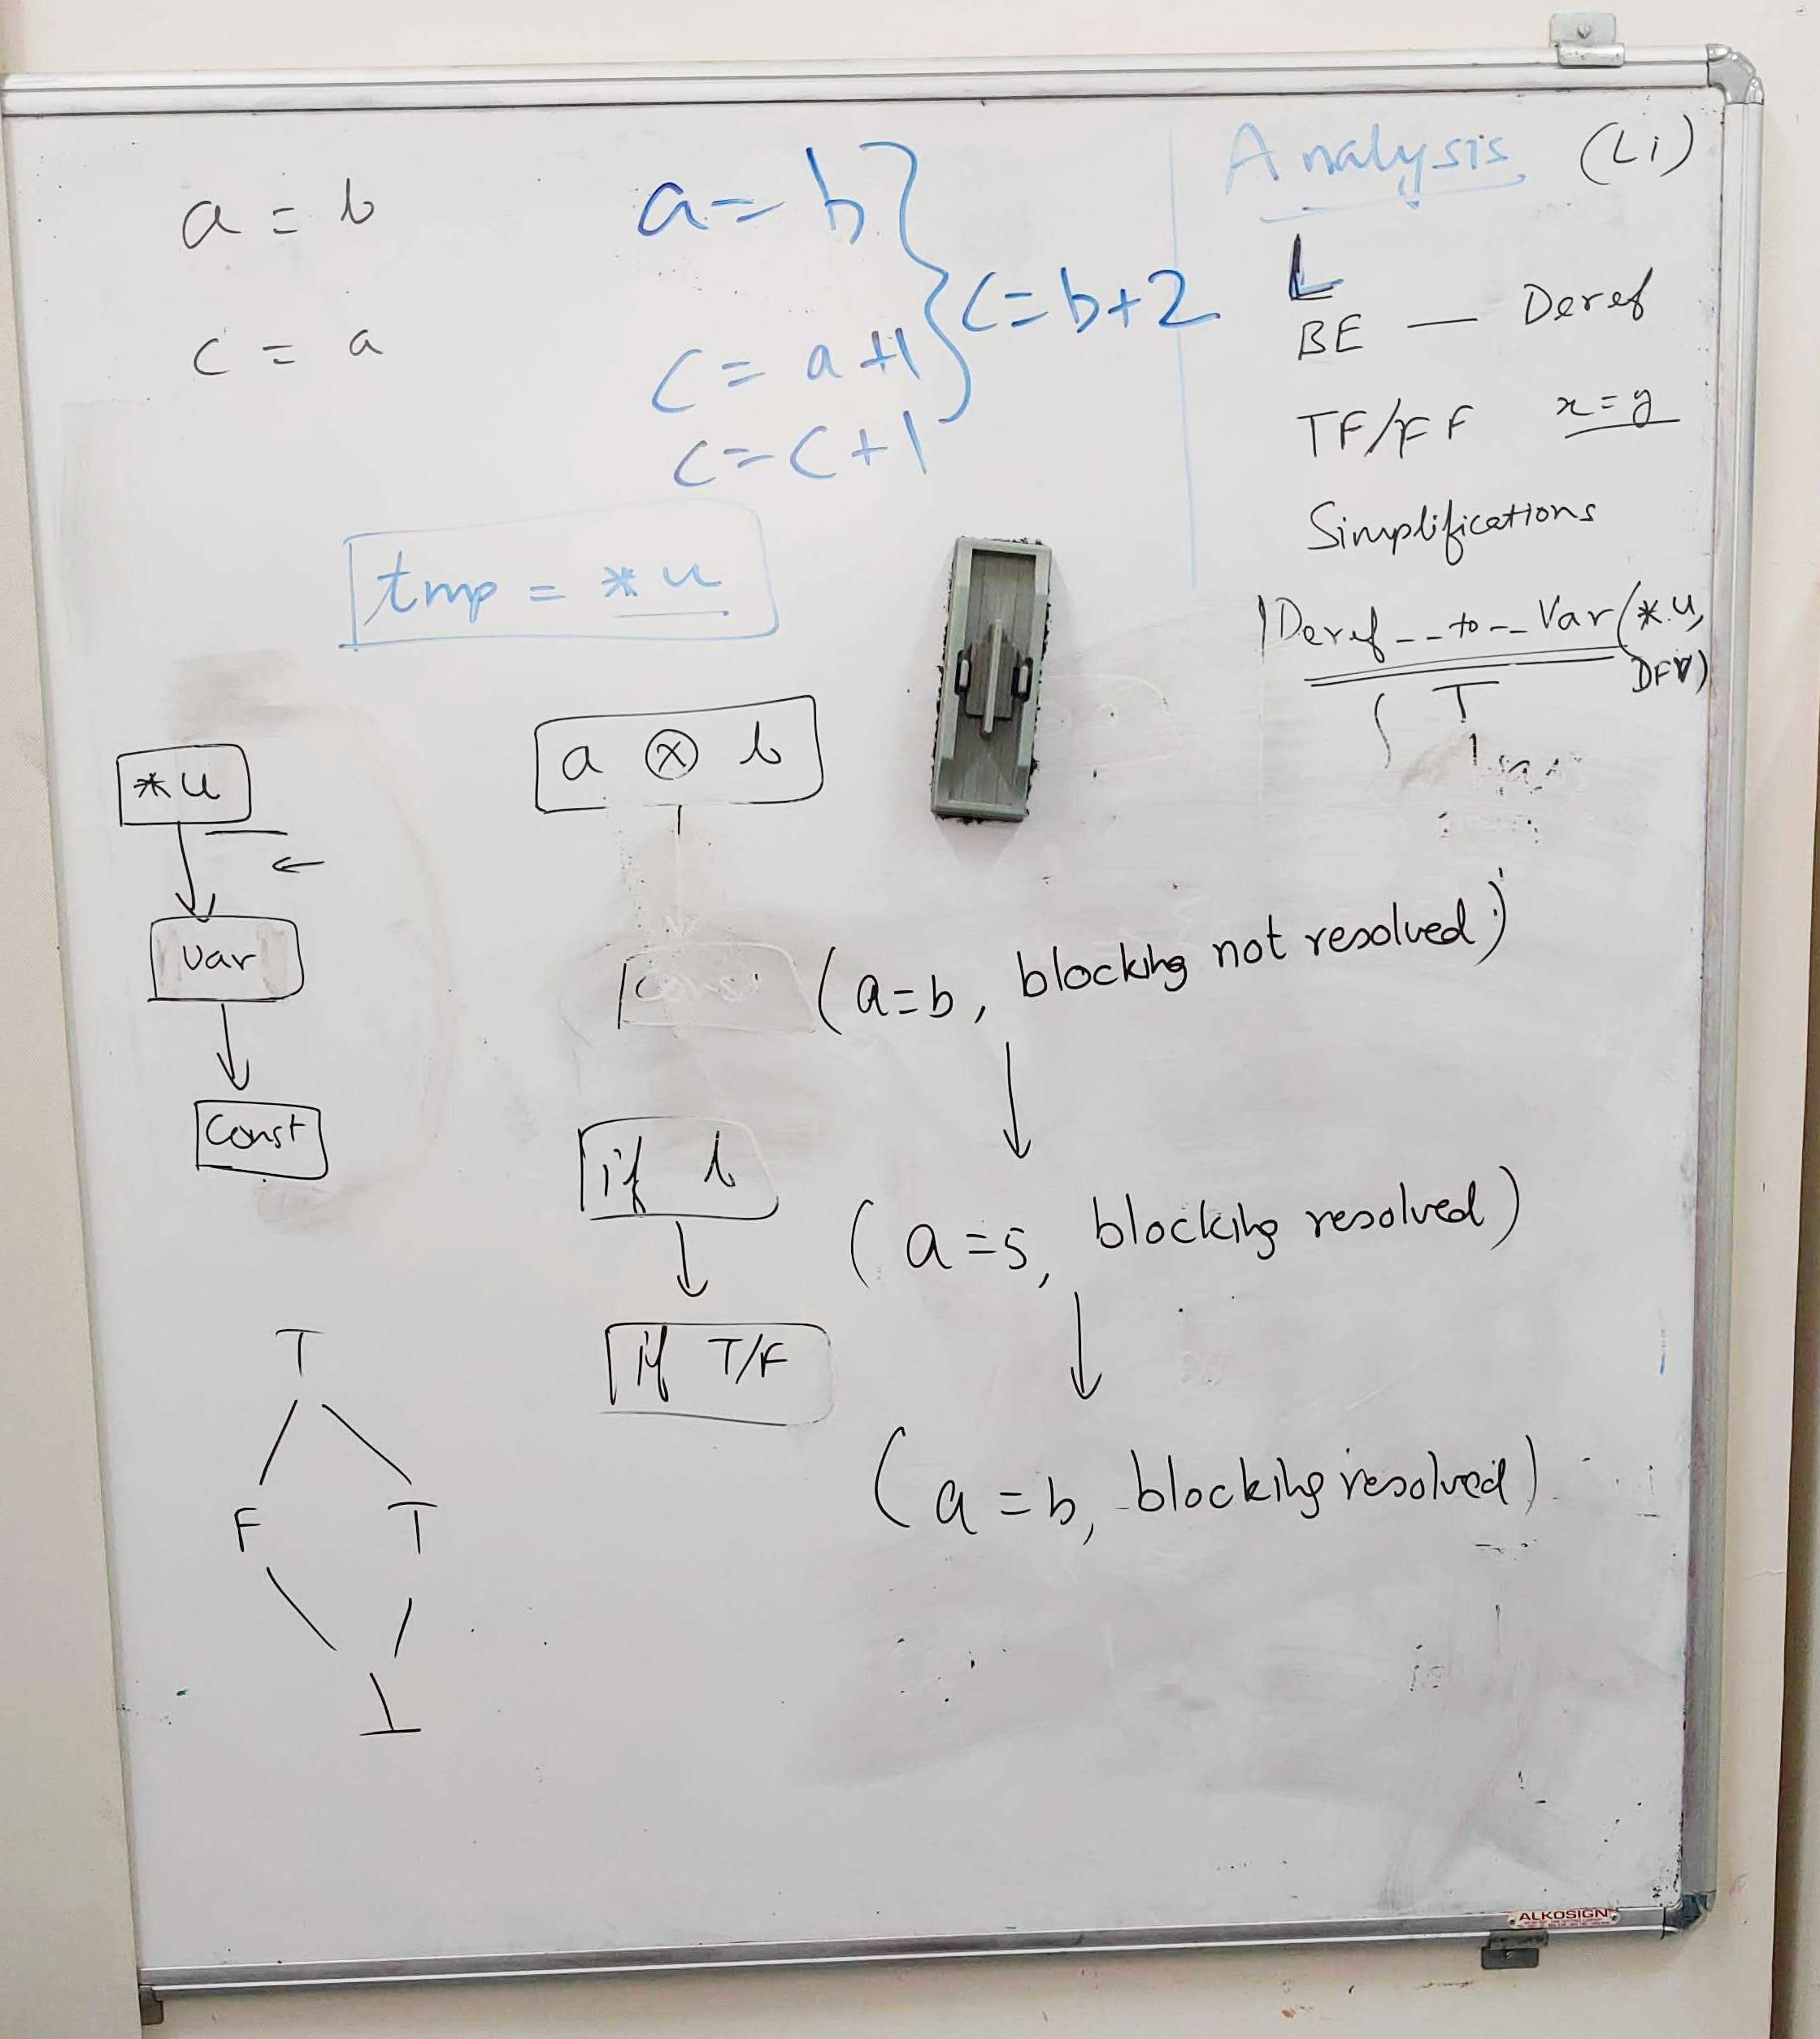 a = b
c = a
a = b
c = a + 1
c = c + 1
c = b + 2
tmp = *u
Analysis (Li)
L
BE — Deref
TF/FF x = y
Simplifications
Deref_ _to_ _Var(*u,
DFV)
T
*u
Var
Const
a ⊗ b
Const
if b
if T/F
(a=b, blocking not resolved)
(a=5, blocking resolved)
(a=b, blocking resolved)
T
F T
⊥
ALKOSIGN